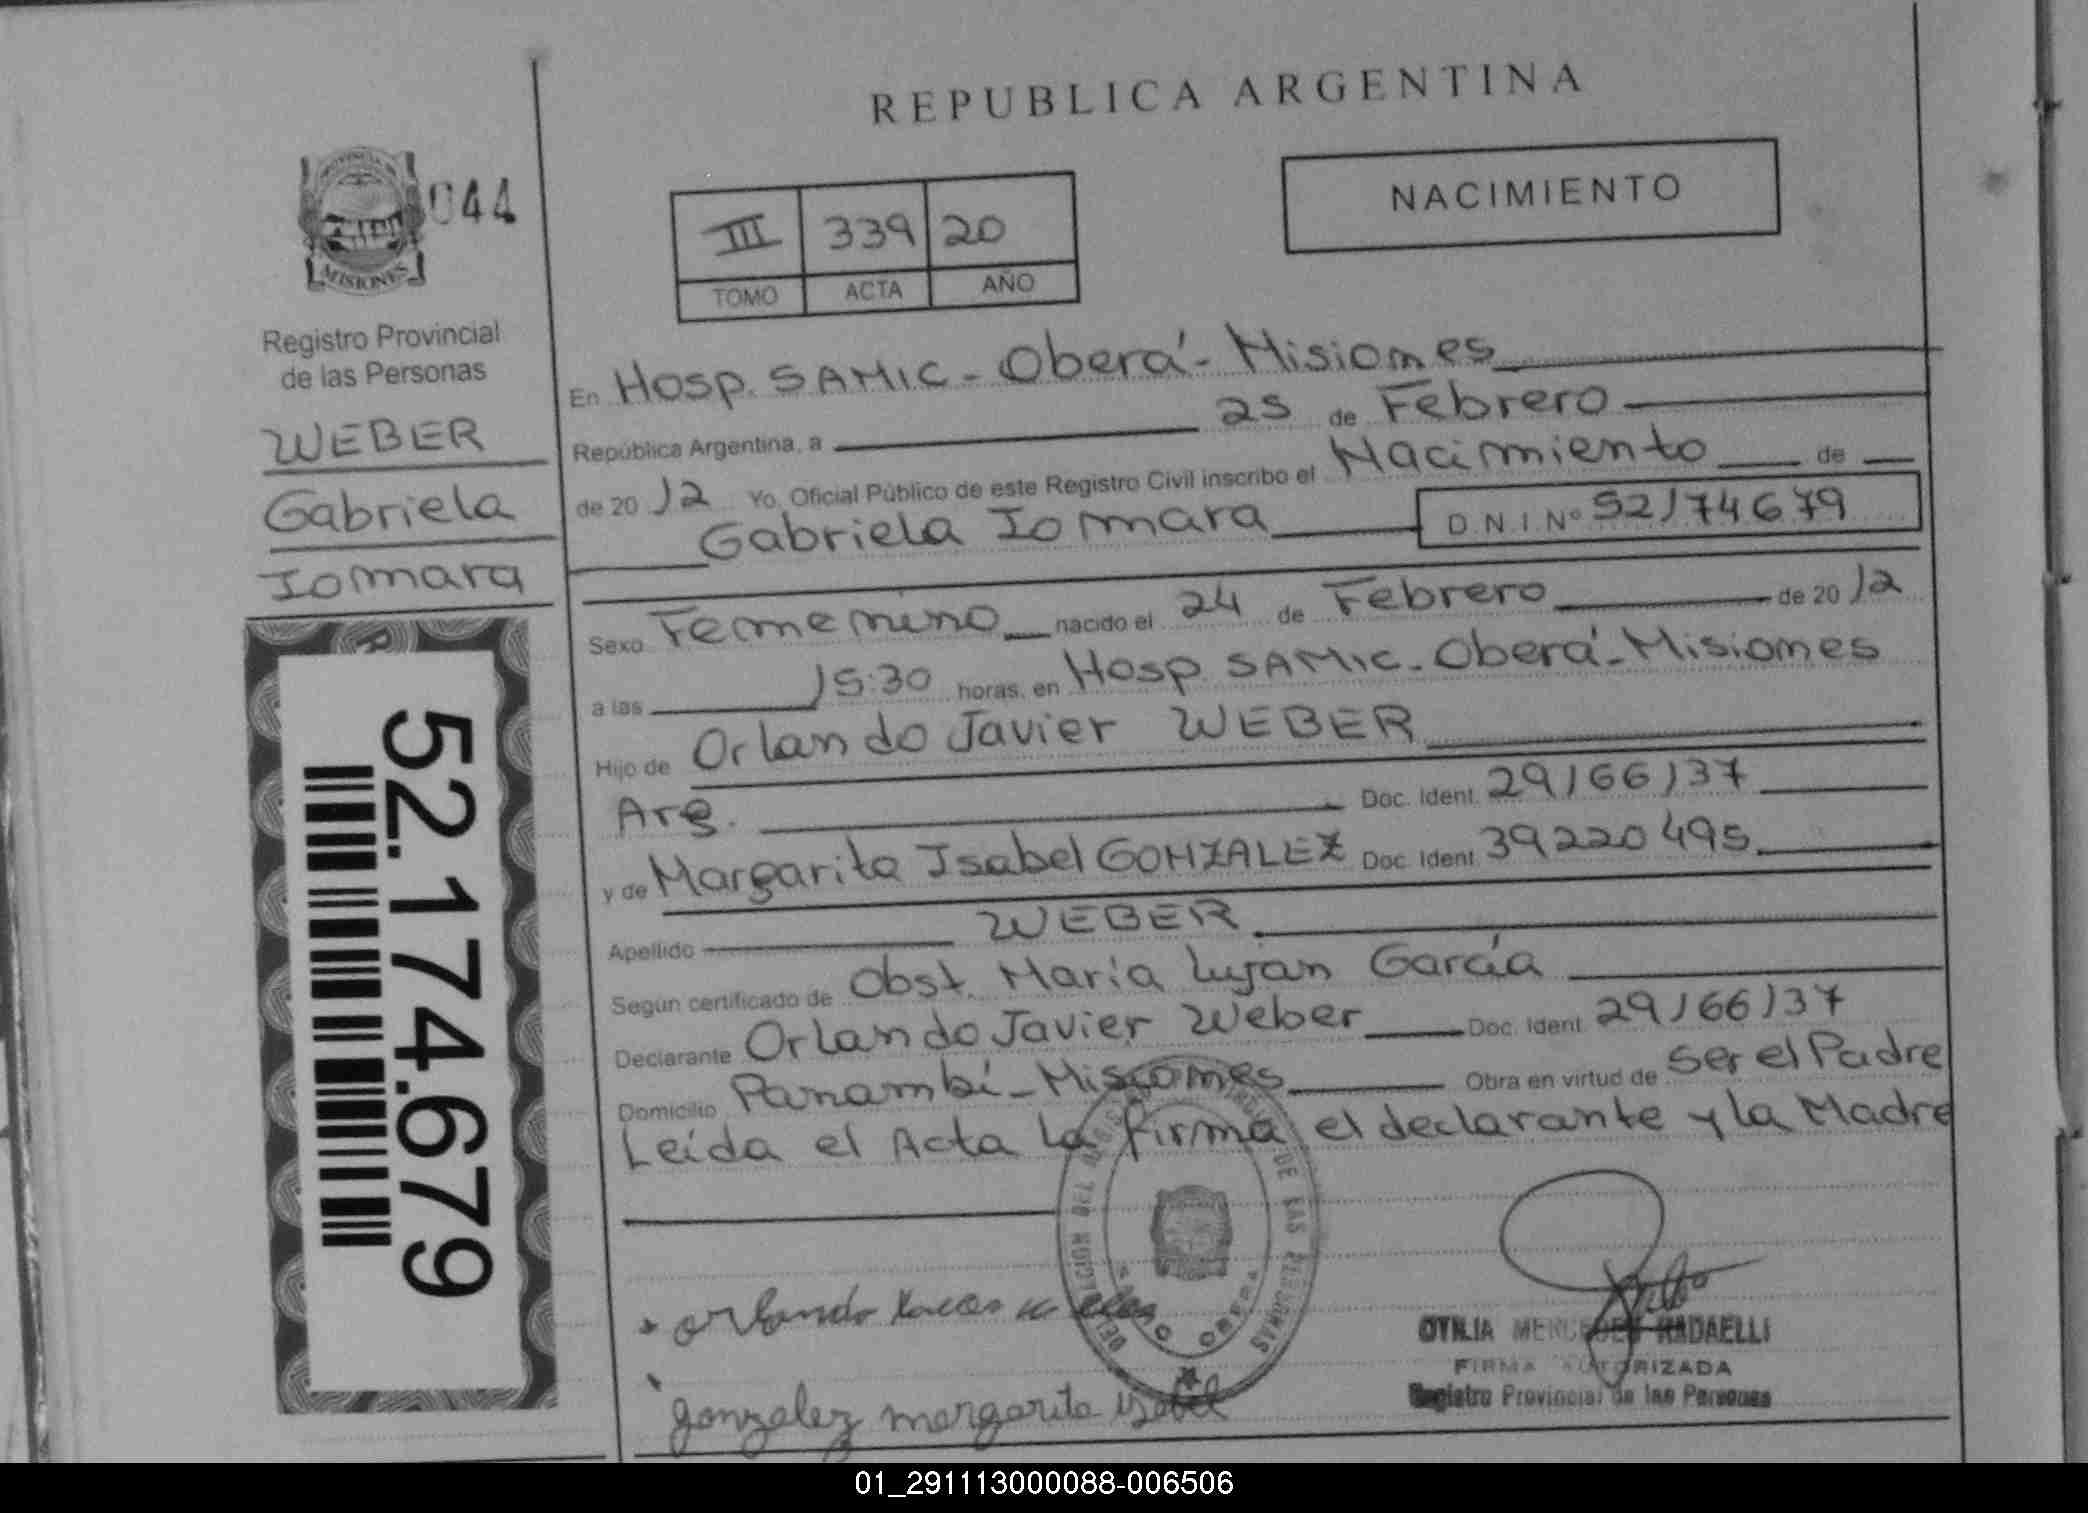 REPUBLICA ARGENTINA
NACIMIENTO
044
PROVINCIA DE
MISIONES
III 339 20
TOMO ACTA AÑO
Registro Provincial
de las Personas
WEBER
Gabriela
Iomara
52.174.679
En Hosp. SAMIC - Oberá - Misiones
República Argentina, a 25 de Febrero
de 2012 Yo, Oficial Público de este Registro Civil inscribo el Nacimiento de
Gabriela Iomara D.N.I.Nº 52174679
Sexo Femenino nacido el 24 de Febrero de 2012
a las 15:30 horas, en Hosp. SAMIC - Oberá - Misiones
Hijo de Orlando Javier WEBER
Arg. Doc. Ident. 29166137
y de Margarita Isabel GONZALEZ Doc. Ident. 39220495
Apellido WEBER
Según certificado de Obst. María Lujan García
Declarante Orlando Javier Weber Doc. Ident. 29166137
Domicilio Panambí - Misiones Obra en virtud de ser el Padre
Leída el Acta la firma el declarante y la Madre
DE LAS PERSONAS
OBERA
orlando
gonzalez margarita isabel
OTILIA MERCEDES RADAELLI
FIRMA AUTORIZADA
Registro Provincial de las Personas
01_291113000088-006506